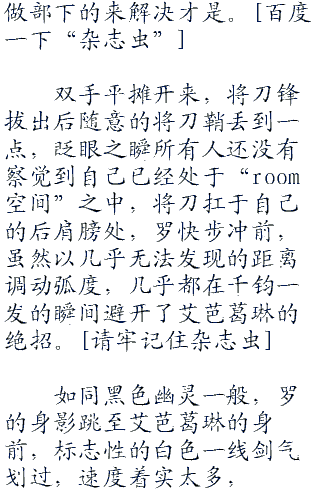 做部下的来解决才是。[百度
一下“杂志虫”]
双手平摊开来，将刀锋
拔出后随意的将刀鞘丢到一
点，眨眼之瞬所有人还没有
察觉到自己已经处于“room
空间”之中，将刀扛于自己
的后肩膀处，罗快步冲前，
虽然以几乎无法发现的距离
调动弧度，几乎都在千钧一
发的瞬间避开了艾芭葛琳的
绝招。[请牢记住杂志虫]
如同黑色幽灵一般，罗
的身影跳至艾芭葛琳的身
前，标志性的白色一线剑气
划过，速度着实太多，